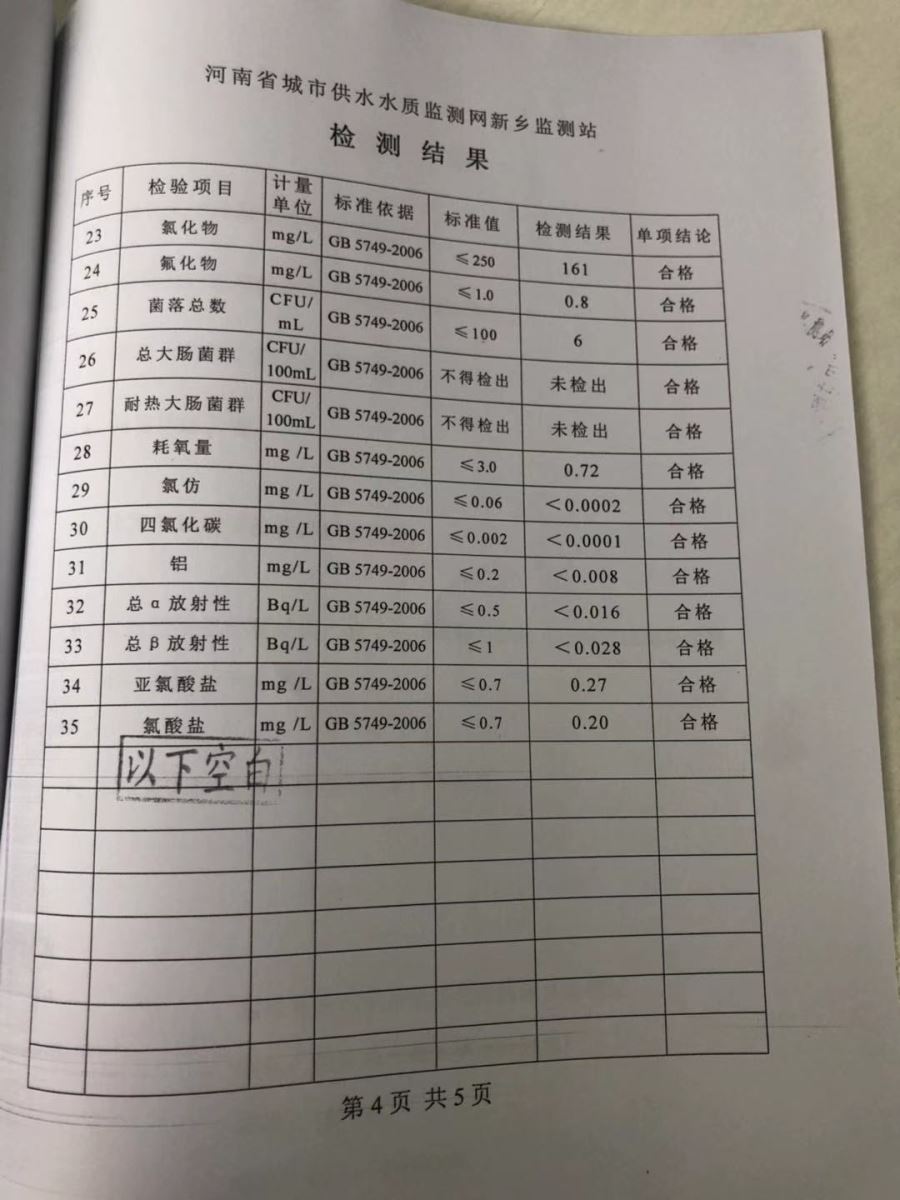 河南省城市供水水质监测网新乡监测站
检测结果
序号 检验项目 计量单位 标准依据 标准值 检测结果 单项结论
23 氯化物 mg/L GB 5749-2006 ≤250 161 合格
24 氟化物 mg/L GB 5749-2006 ≤1.0 0.8 合格
25 菌落总数 CFU/mL GB 5749-2006 ≤100 6 合格
26 总大肠菌群 CFU/100mL GB 5749-2006 不得检出 未检出 合格
27 耐热大肠菌群 CFU/100mL GB 5749-2006 不得检出 未检出 合格
28 耗氧量 mg /L GB 5749-2006 ≤3.0 0.72 合格
29 氯仿 mg /L GB 5749-2006 ≤0.06 <0.0002 合格
30 四氯化碳 mg /L GB 5749-2006 ≤0.002 <0.0001 合格
31 铝 mg/L GB 5749-2006 ≤0.2 <0.008 合格
32 总α放射性 Bq/L GB 5749-2006 ≤0.5 <0.016 合格
33 总β放射性 Bq/L GB 5749-2006 ≤1 <0.028 合格
34 亚氯酸盐 mg /L GB 5749-2006 ≤0.7 0.27 合格
35 氯酸盐 mg /L GB 5749-2006 ≤0.7 0.20 合格
以下空白
第4页 共5页